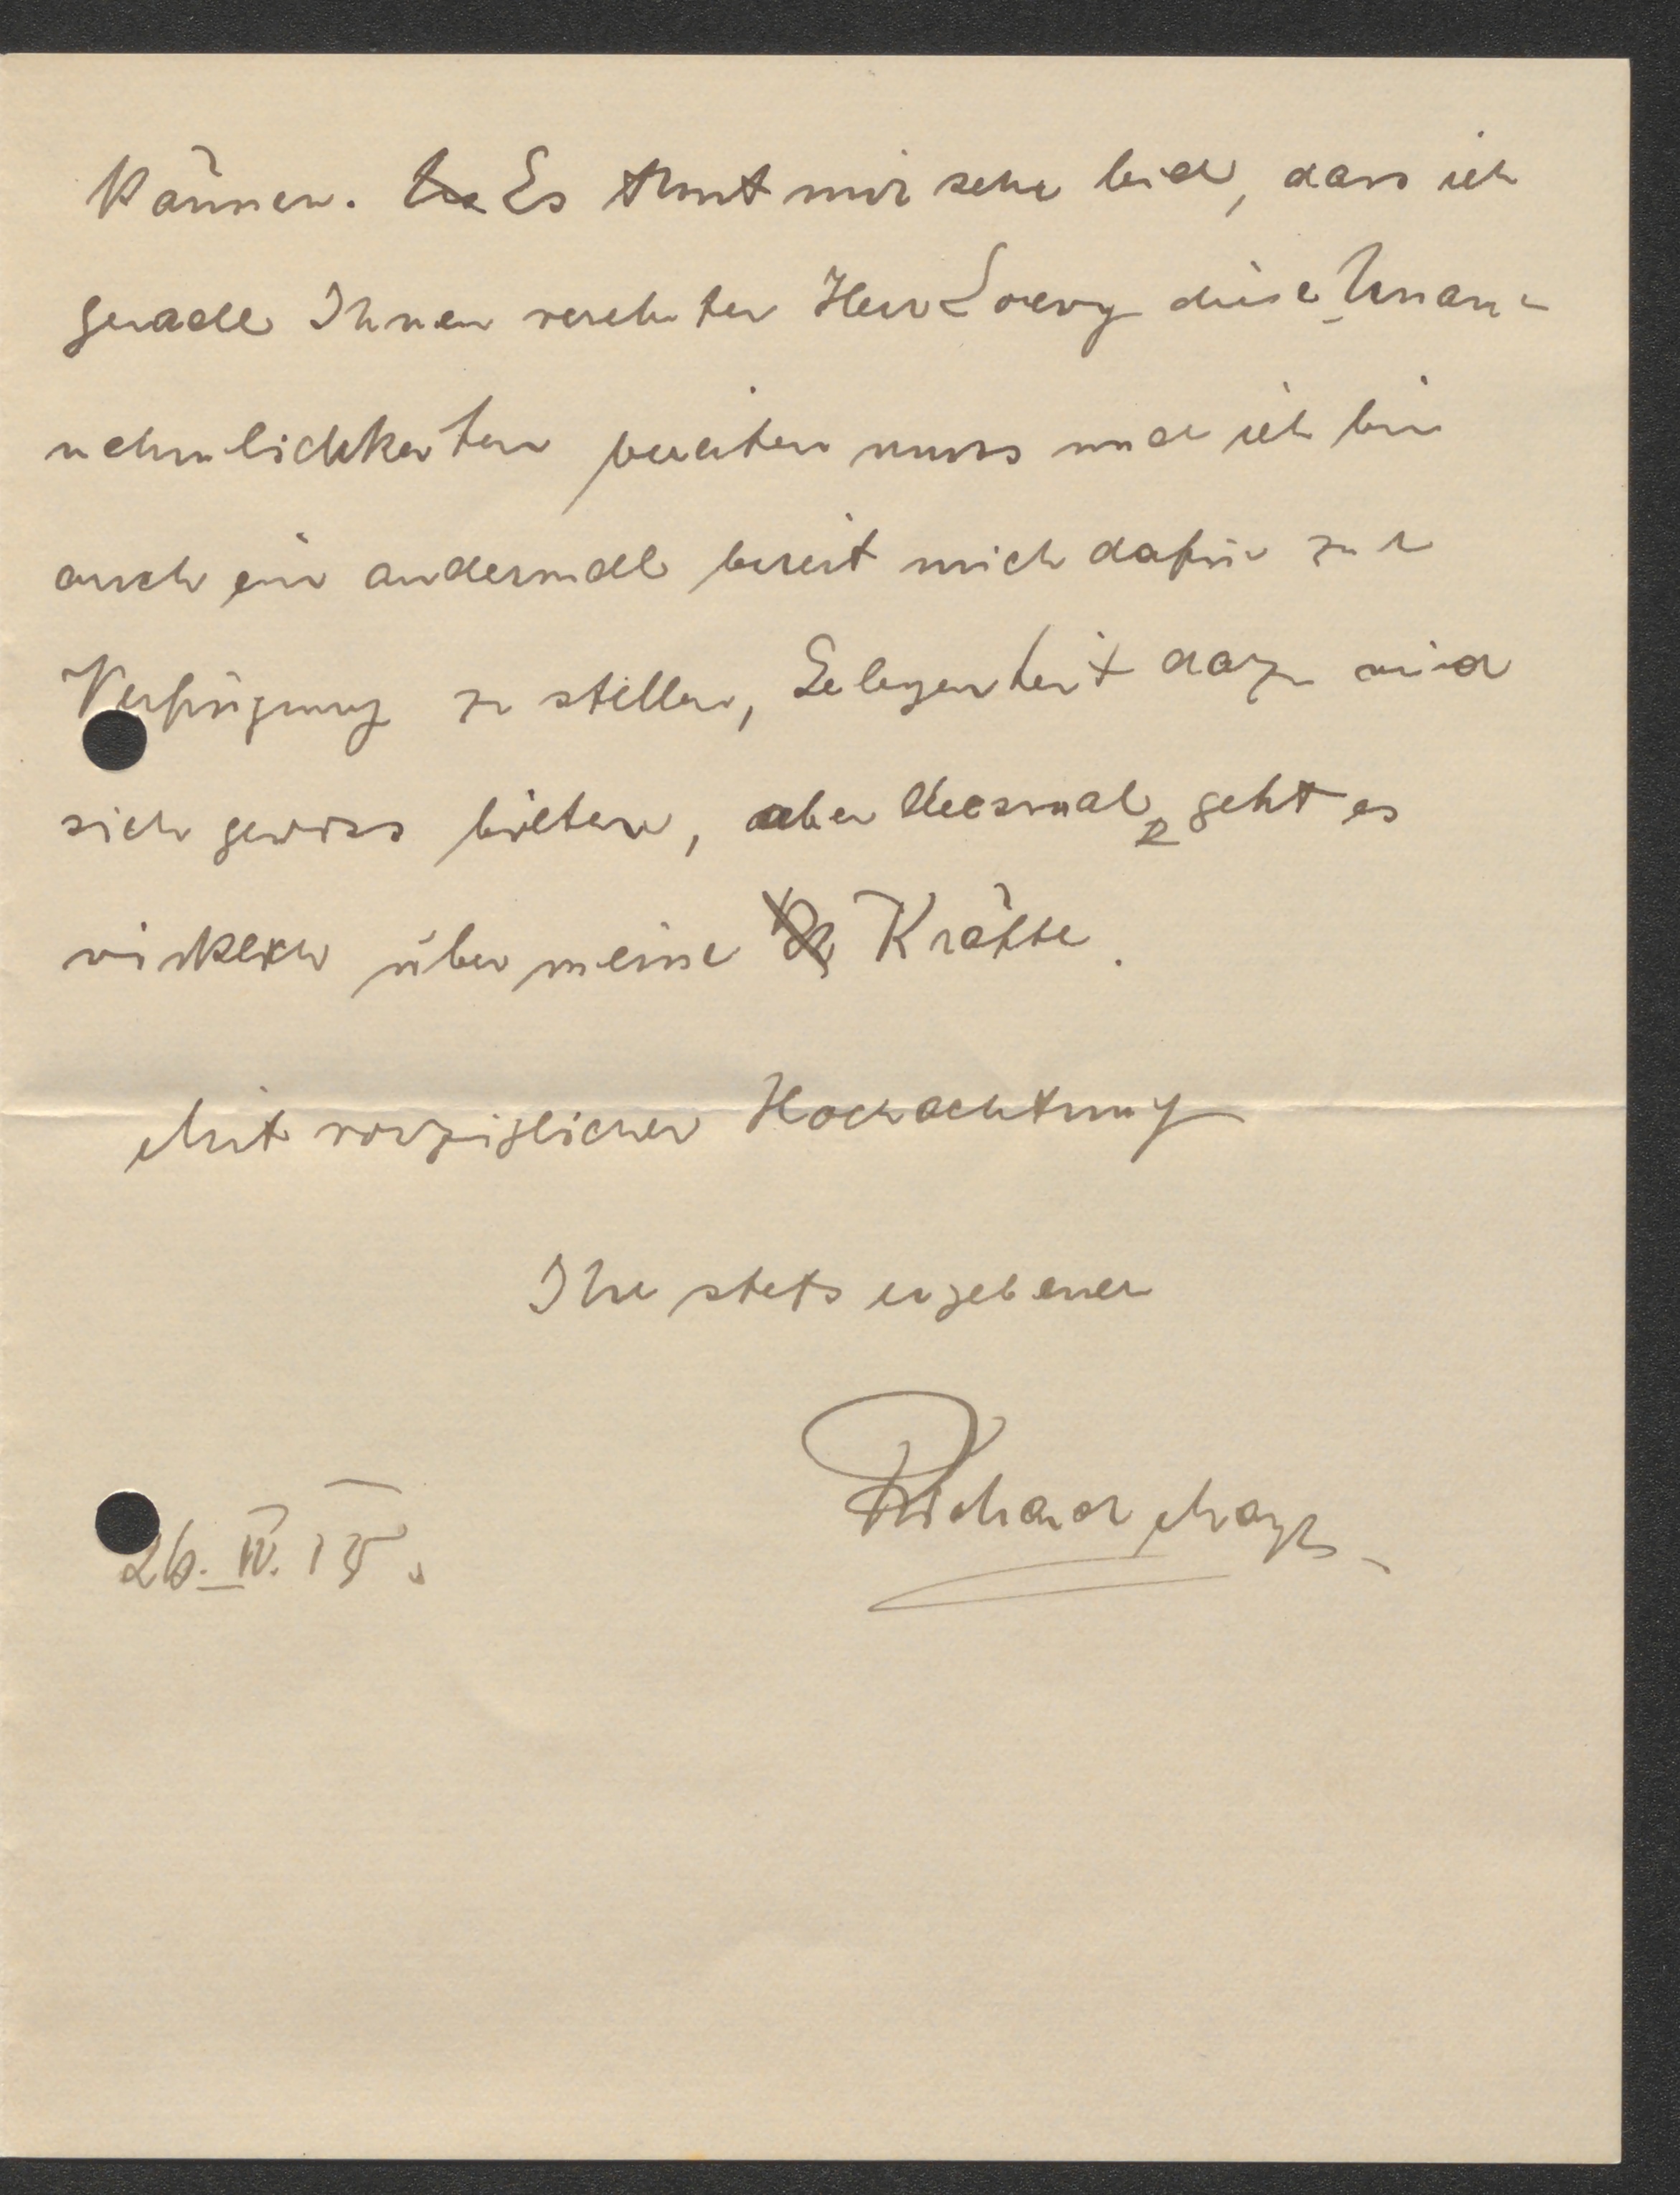 können. Es thut mir sehr leid, dass ich
gerade Ihnen verehrter Herr Loewy diese Unan-
nehmlichkeiten bereiten muss und ich bin
auch ein andermal bereit mich dafür zur
Verfügung zu stellen, Gelegenheit dazu wird
sich gewiss bieten, aber diesmal geht es
wirklich über meine Kräfte.
Mit vorzüglicher Hochachtung
Ihr stets ergebener
Richard
26. IV. 15.